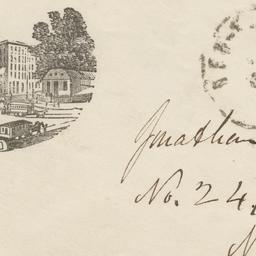 Jonathan
No. 24.
N